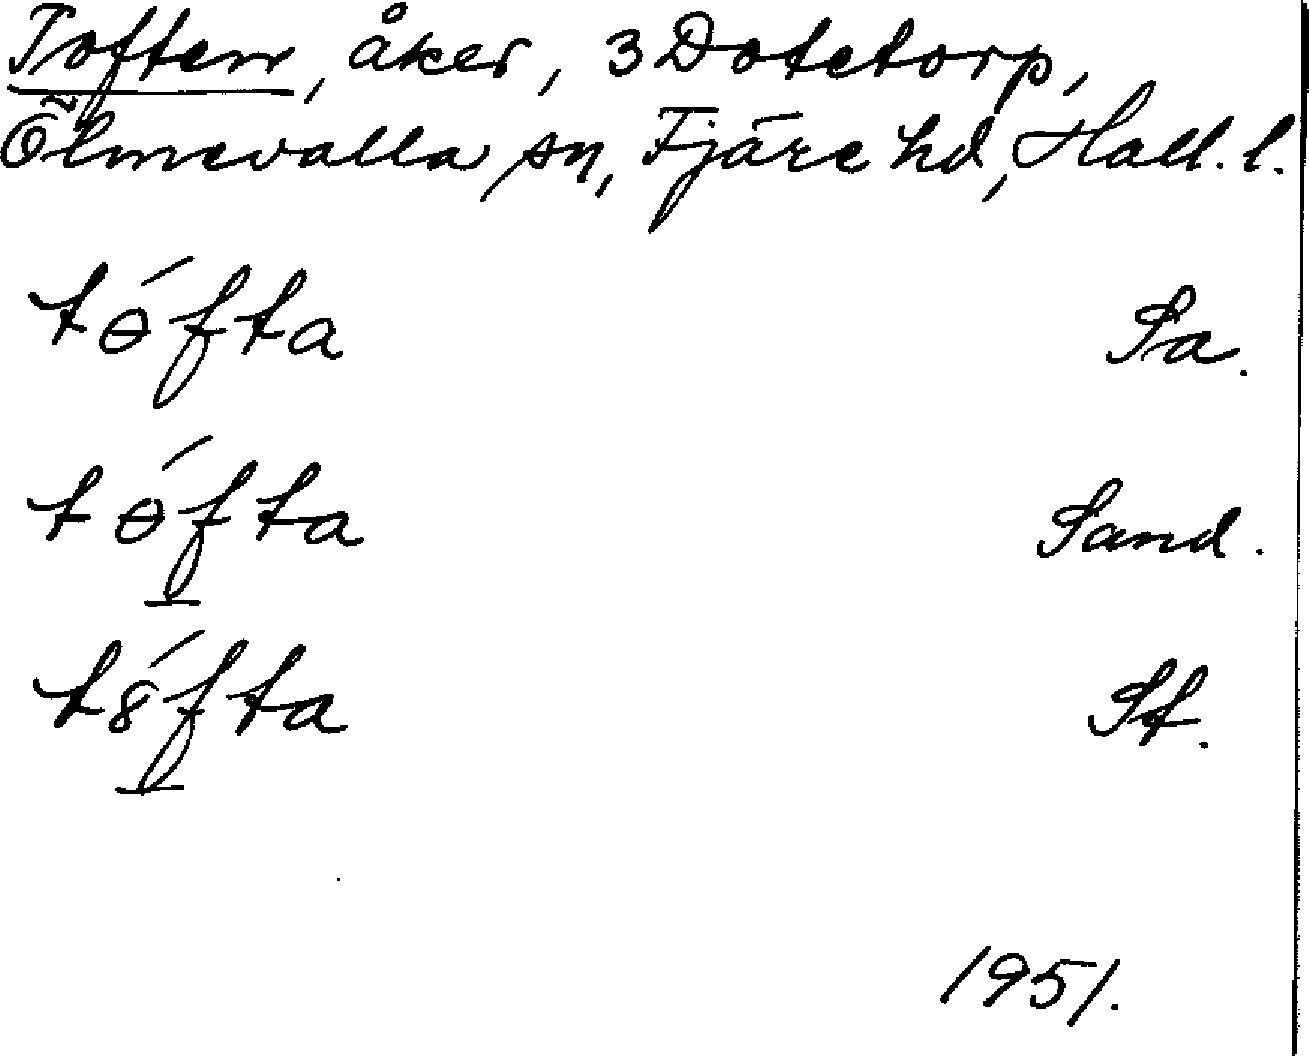 Toften, åker, 3 Dotetorp,
Ölmevalla sn, Fjäre hd, Hall. l.
tɵ́fta Sa.
tɵ́fta Sand.
t8́fta St.
1951.